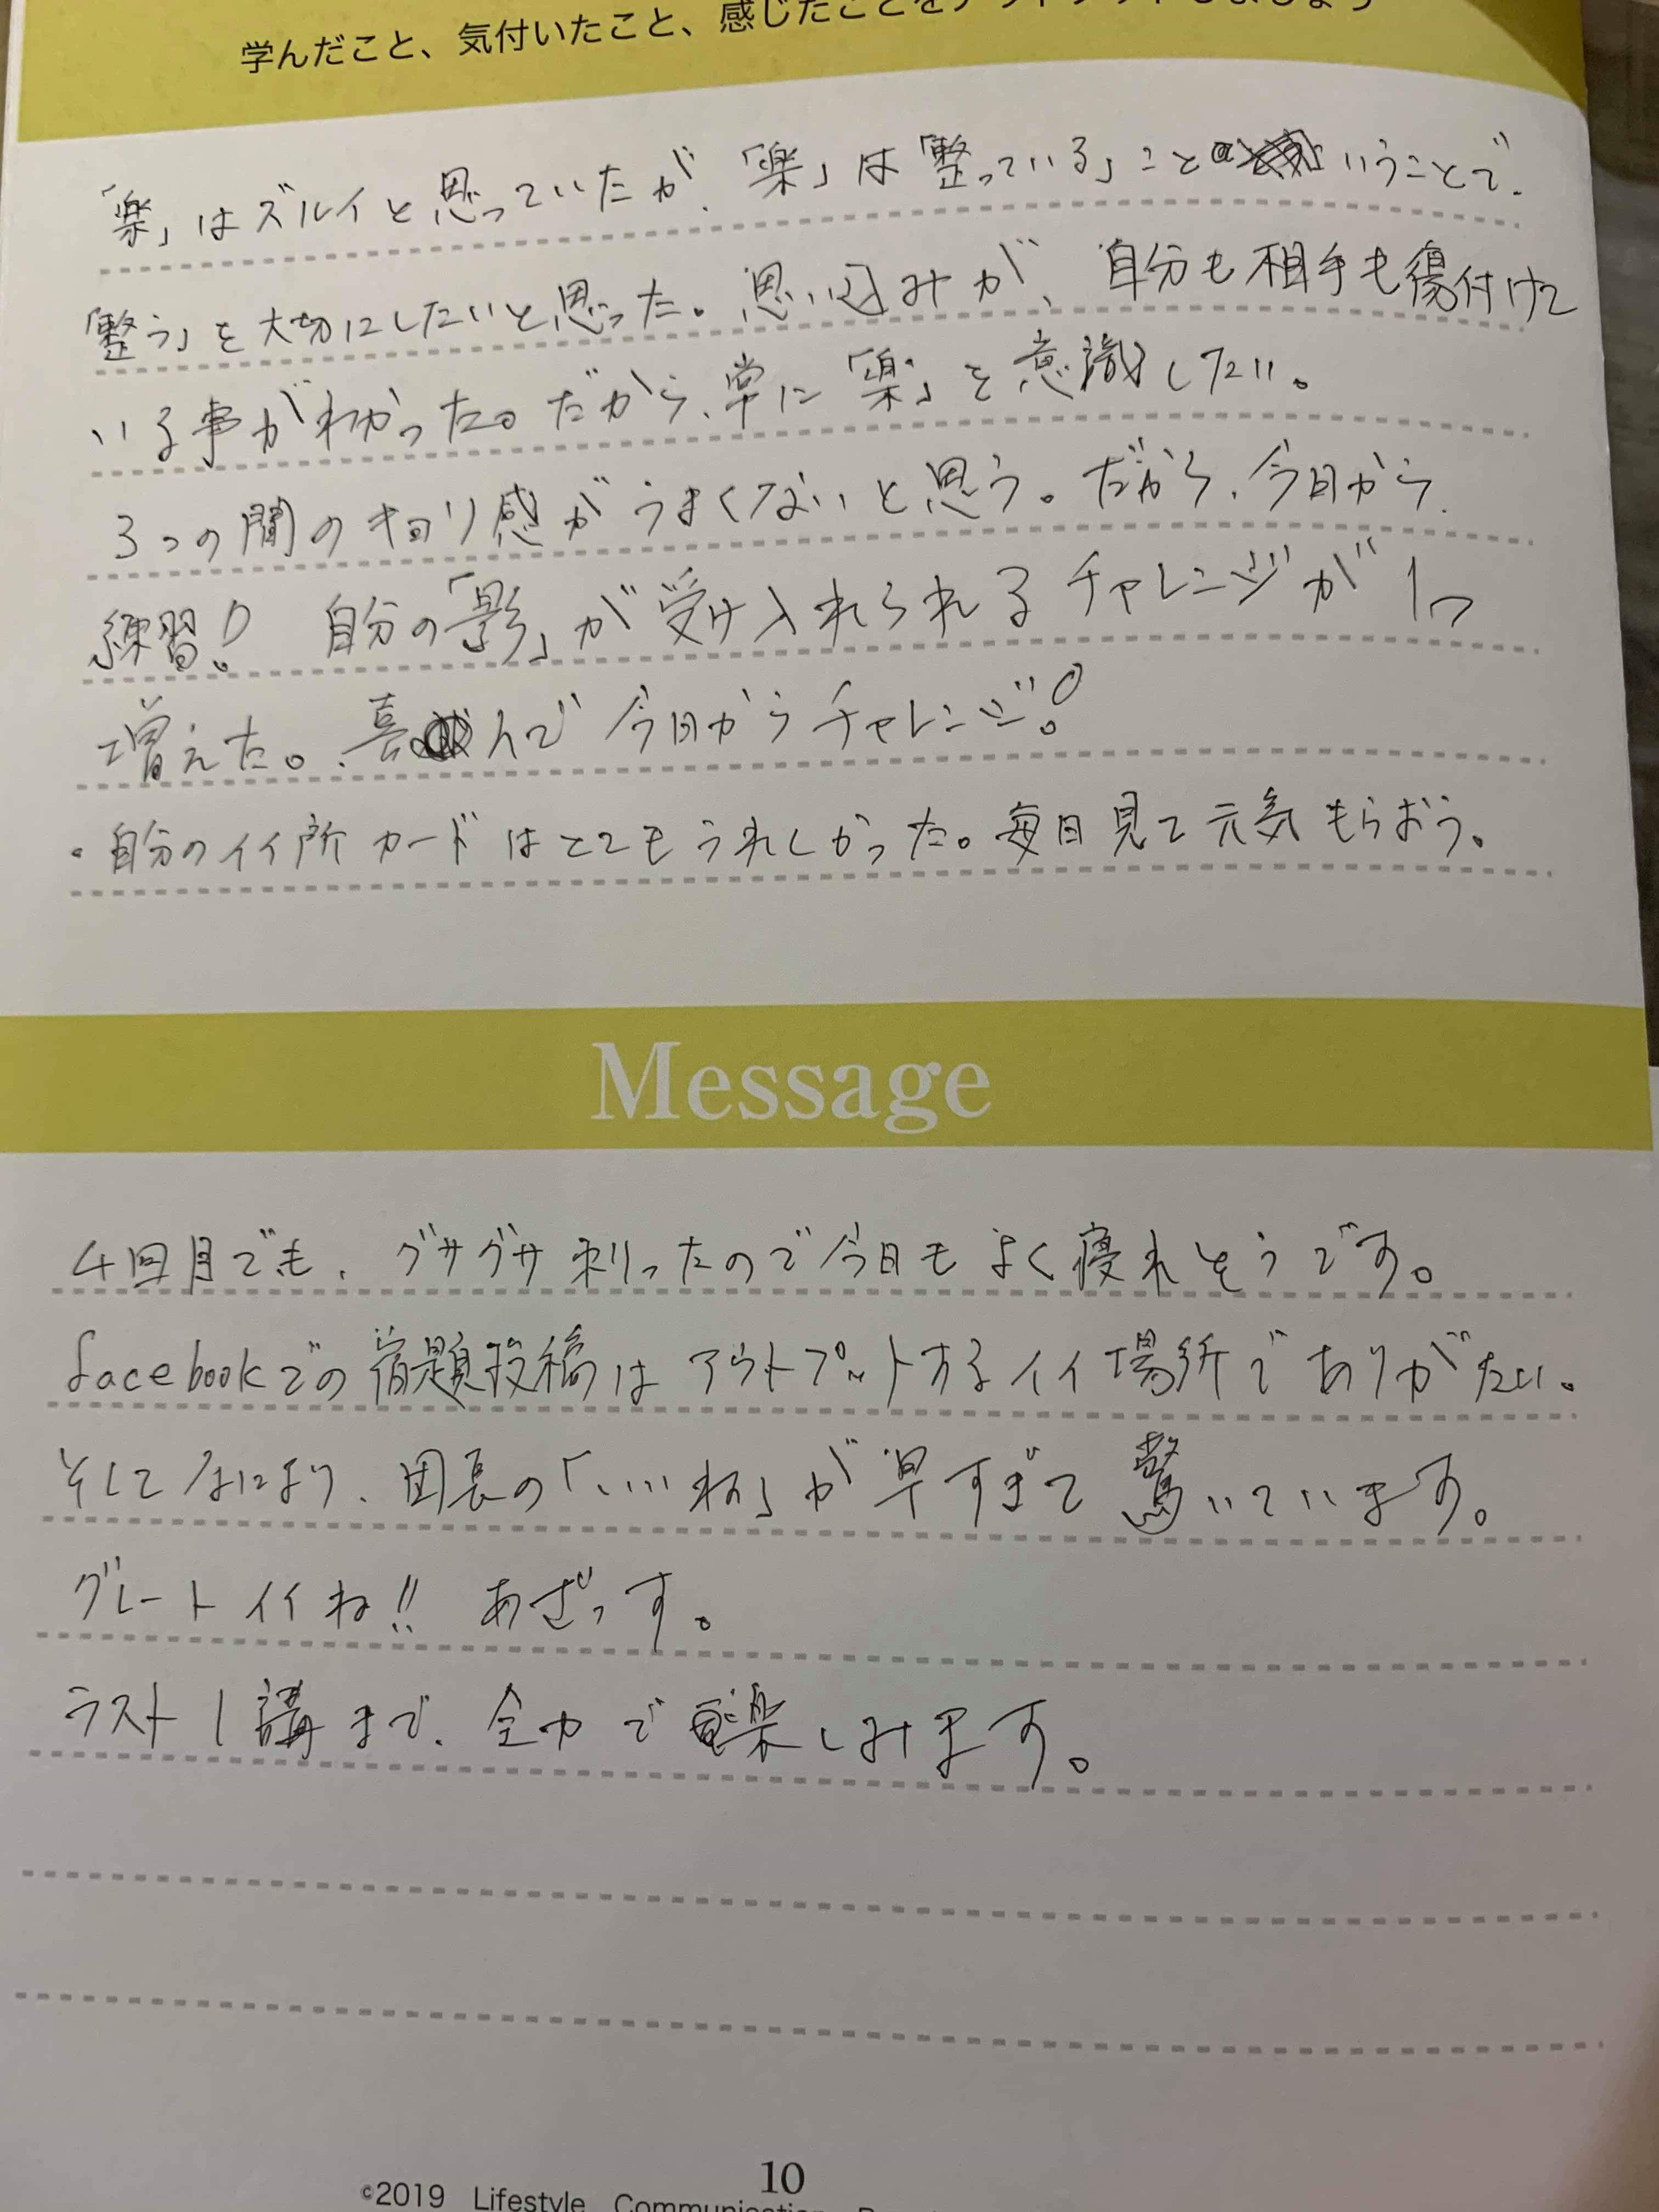 学んだこと、気付いたこと、感じたことをアウトプットしましょう
「楽」はズルイと思っていたが、「楽」は「整っている」こということで、
「整う」を大切にしたいと思った。思い込みが、自分も相手も傷付けて
いる事がわかった。だから、常に「楽」を意識したい。
3つの間のキョリ感がうまくないと思う。だから、今日から、
練習! 自分の「影」が受け入れられるチャレンジが1つ
増えた。喜んで今日からチャレンジ!
・自分のイイ所カードはとてもうれしかった。毎日見て元気もらおう。
Message
4回目でも、グサグサ刺ったので今日もよく寝れそうです。
facebookでの宿題投稿はアウトプットするイイ場所でありがたい。
そしてなにより、団長の「いいね」が早すぎて驚いています。
グレートイイね!! あざっす。
ラスト1講まで、全力で楽しみます。
10
©2019 Lifestyle Communication